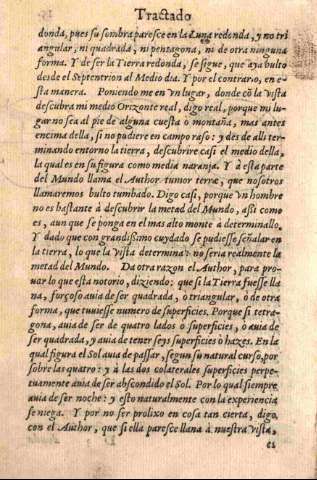 Tractado
donda, pues su sombra paresce en la Luna redonda, y no tri
angular, ni quadrada, ni pentagona, ni de otra ninguna
forma. Y de ser la Tierra redonda, se sigue, que aya bulto
desde el Septentrion al Medio dia. Y por el contrario, en e-
sta manera. Poniendo me en vn lugar, donde cõ la vista
descubra mi medio Orizonte real, digo real, porque mi lu-
gar no sea al pie de alguna cuesta o montaña, mas antes
encima della, si no pudiere en campo raso: y des de alli ter-
minando entorno la tierra, descubrire casi el medio della,
la qual es en su figura como media naranja. Y à esta parte
del Mundo llama el Author tumor terræ, que nosotros
llamaremos bulto tumbado. Digo casi, porque vn hombre
no es bastante à descubrir la metad del Mundo, assi como
es, aun que se ponga en el mas alto monte à determinallo.
Y dado que con grandissimo cuydado se pudiesse señalar en
la tierra, lo que la vista determina no seria realmente la
metad del Mundo. Da otra razon el Author, para pro-
uar lo que esta notorio, diziendo: que si la Tierra fuesse lla
na, forçoso auia de ser quadrada, o triangular, ò de otra
forma, que tuuiesse numero de superficies. Porque si tetra-
gona, auia de ser de quatro lados o superficies, ò auia de
ser quadrada, y auia de tener seys superficies ò hazes. En la
qual figura el Sol auia de passar, segun su natural curso, por
sobre las quatro: y à las dos colaterales superficies perpe-
tuamente auia de ser abscondido el Sol. Por lo qual siempre
auia de ser noche: y esto naturalmente con la experiencia
se niega. Y por no ser prolixo en cosa tan cierta, digo,
con el Author, que si ella paresce llana à nuestra vista,
es